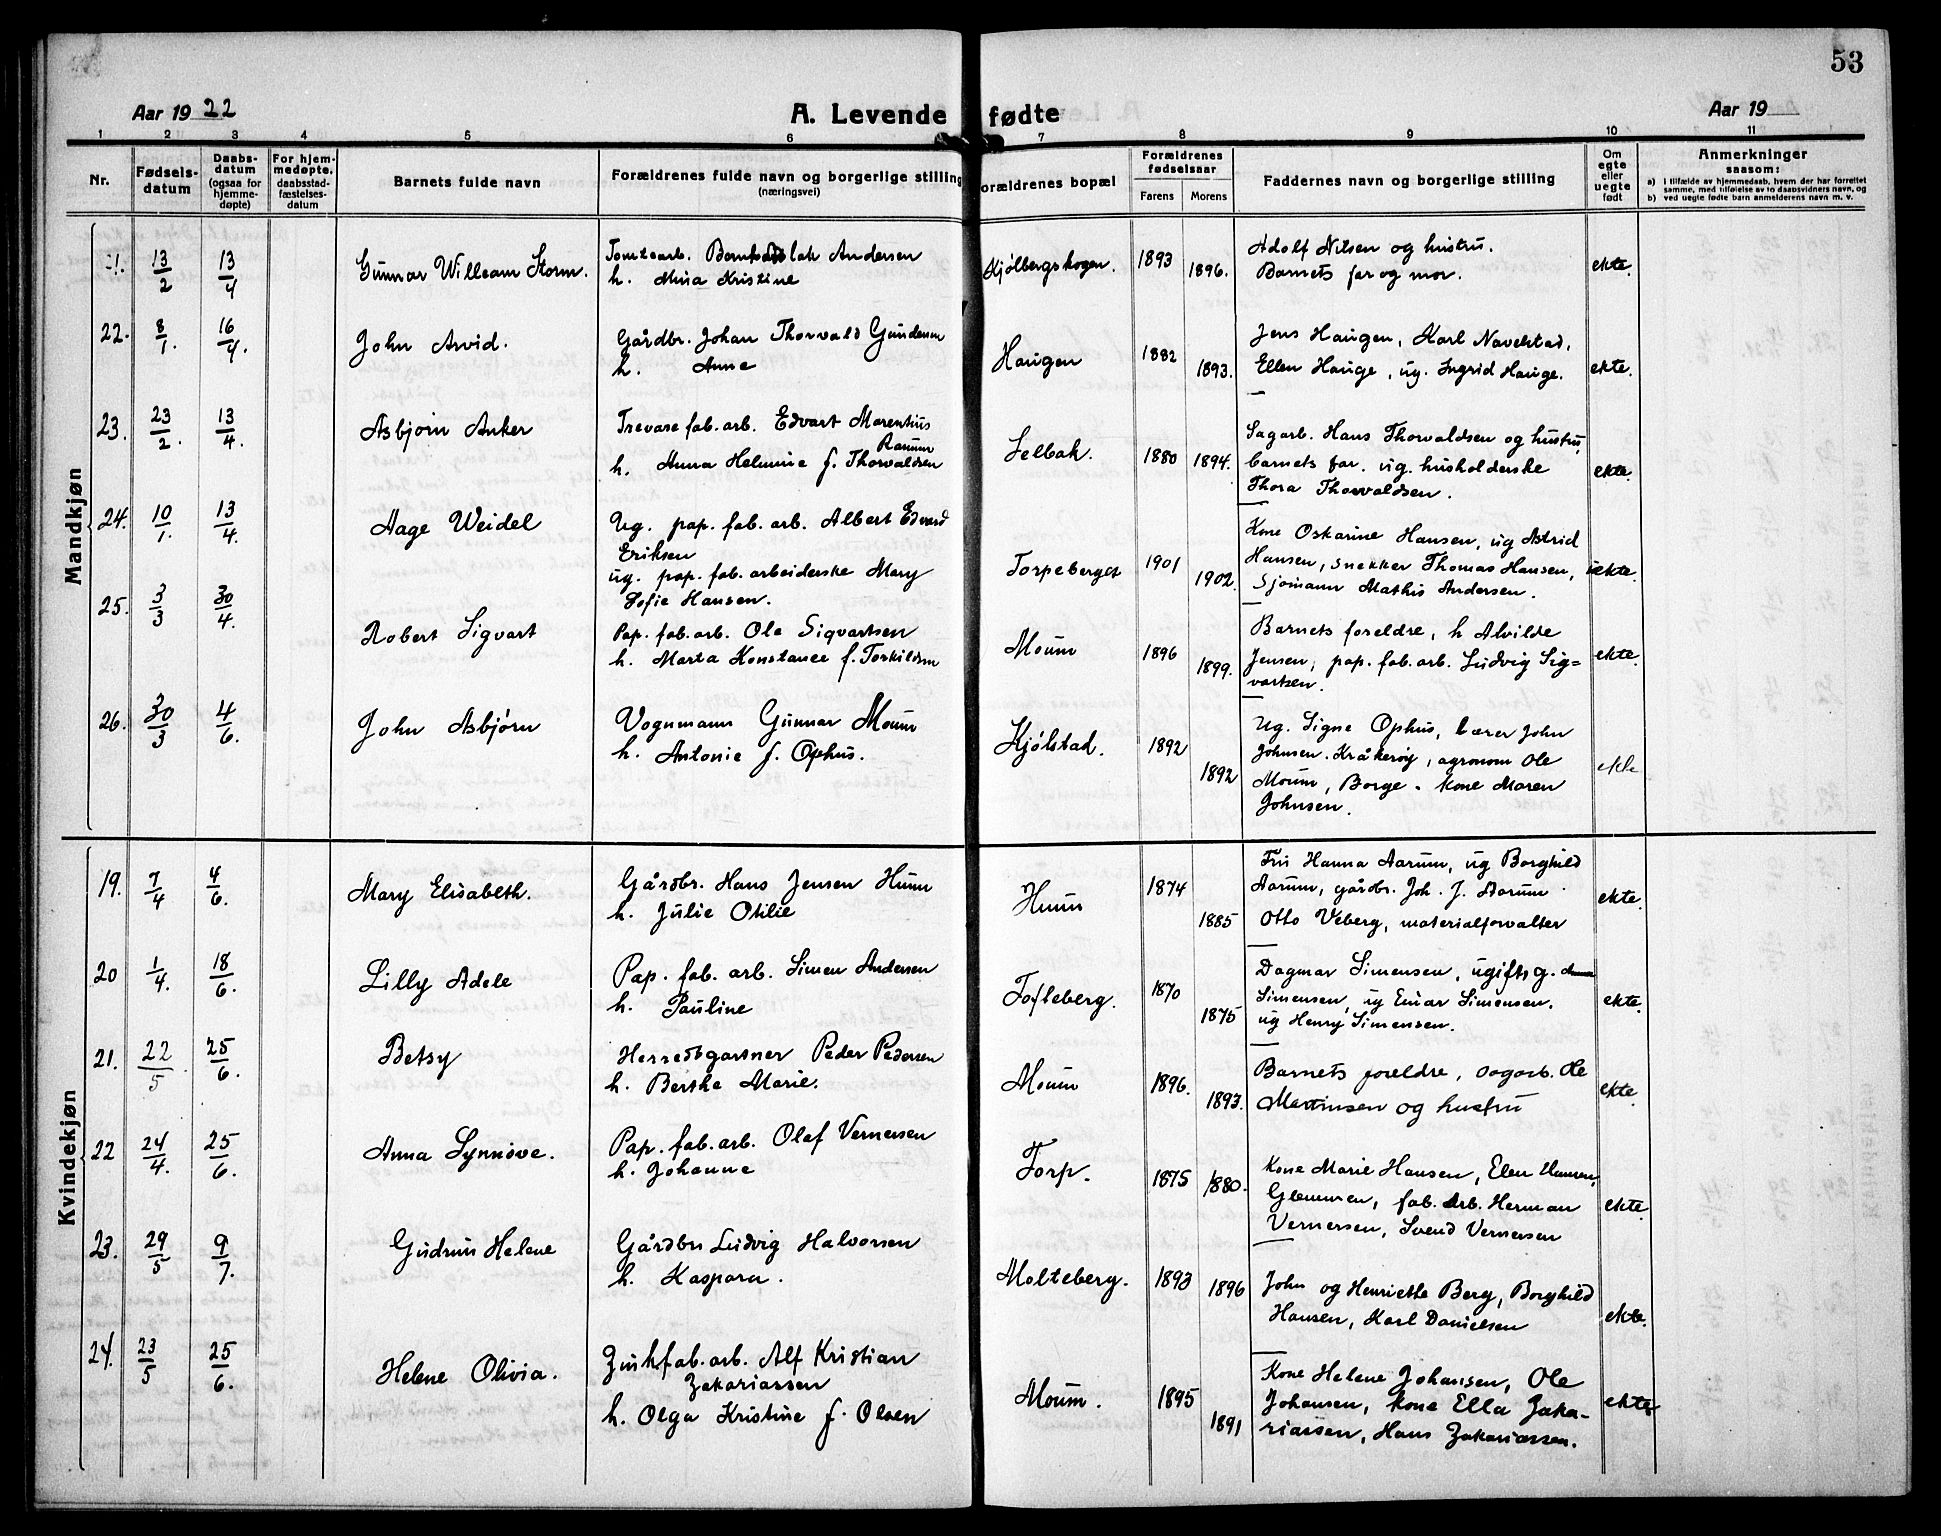 53
Aar 1922
A. Levende fødte
Aar 19
1 2 3 4 5 6 7 8 9 10 11
Nr.
Fødsels-
datum
Daabs-
datum
(ogsaa for
hjemme-
døpte)
For hjem-
medøpte.
daabsstad-
fæstelses-
datum
Barnets fulde navn
Forældrenes fulde navn og borgerlige stilling
(næringsvei)
Forældrenes bopæl
Forældrenes
fødselsaar
Farens Morens
Faddernes navn og borgerlige stilling
Om
egte
eller
uegte
født
Anmerkninger
saasom:
a) i tilfælde av hjemmedaab, hvem der har forrettet
samme, med tilføielse av to daabsvidners navn, og
b) ved uegte fødte barn anmelderens navn m. v.
Mandkjøn
21. 13/2 13/4 Gunnar William Storm.
Tomtearb. Andersen
h. Mina Kristine
Kjølbergskogen. 1893 1896.
Adolf Nilsen og hustru.
Barnets far og mor.
ekte.
22. 8/1. 16/4. John Arvid.
Gårdbr. Johan Thorvald Gundersen
h. Anne
Haugen 1882 1893.
Jens Haugen, Karl Navelstad,
Ellen Hauge, ug. Ingrid Hauge.
ekte.
23. 23/2. 13/4. Asbjørn Anker
Trevarefab.arb. Edvart Marentius
Ramum
h. Anna Helmine f. Thorvaldsen
Selbak. 1880 1894.
Sagarb. Hans Thorvaldsen og hustru,
barnets far. ug. husholderske
Thora Thorvaldsen.
ekte.
24. 10/1. 13/4. Aage Weidel
Ug. pap. fab. arb. Albert Edvard
Eriksen
ug. pap. fab. arbeiderske Mary
Sofie Hansen.
Torpeberget 1901 1902.
Kone Oskarine Hansen, ug Astrid
Hansen, snekker Thomas Hansen,
Sjømann Mathis Andersen.
uekte.
25. 3/3 30/4. Robert Sigvart
Pap. fab. arb. Ole Sigvartsen
h. Marta Konstance f. Torkildsen
Moum 1896 1899.
Barnets foreldre, h Alvilde
Jensen, pap. fab. arb. Ludvig Sig=
vartsen.
ekte.
26. 30/3 4/6. John Asbjørn
Vognmann Gunnar Moum
h. Antonie f. Ophus.
Kjølstad. 1892 1892
Ug. Signe Ophus, lærer John
Johnsen. Kråkerøy, agronom Ole
Moum, Borge. Kone Maren
Johnsen.
ekte
Kvindekjøn
19. 7/4 4/6. Mary Elisabeth.
Gårdbr. Hans Jensen Huun
h. Julie Otilie
Huun 1874 1885
Fru Hanna Aarum, ug Borghild
Aarum, gårdbr. Joh. J. Aarum
Otto Veberg, materialforvalter
ekte.
20 1/4. 18/6. Lilly Adele
Pap. fab. arb. Simen Andersen
h. Pauline
Tofteberg. 1870 1875
Dagmar Simensen, ugift g.
Simensen, ug Einar Simensen.
ug Henry Simensen.
ekte.
21. 22/5 25/6. Betsy
Herredsgartner Peder Pedersen
h. Berthe Marie.
Moum 1896. 1893.
Barnets foreldre, sagarb. Ole
Martinsen og hustru
ekte.
22 24/4. 25/6. Anna Synnøve.
Pap. fab. arb. Olaf Vernersen
h. Johanne
Torp. 1875 1880.
Kone Marie Hansen, Elen Hansen,
Glemmen, fab. arb. Herman
Vernersen, Svend Vernersen
ekte.
23. 29/5 9/7. Gudrun Helene
Gårdbr Ludvig Halvorsen
h. Kaspara.
Molteberg. 1893 1896
John og Henriette Berg, Borghild
Hansen, Karl Danielsen
ekte.
24. 23/5 25/6. Helene Olivia.
Zinkfab.arb. Alf Kristian
Zakariassen
h. Olga Kristine f. Olsen
Moum. 1895 1891
Kone Helene Johansen, Ole
Johansen, kone Ella Zaka-
riassen, Hans Zakariassen.
ekte